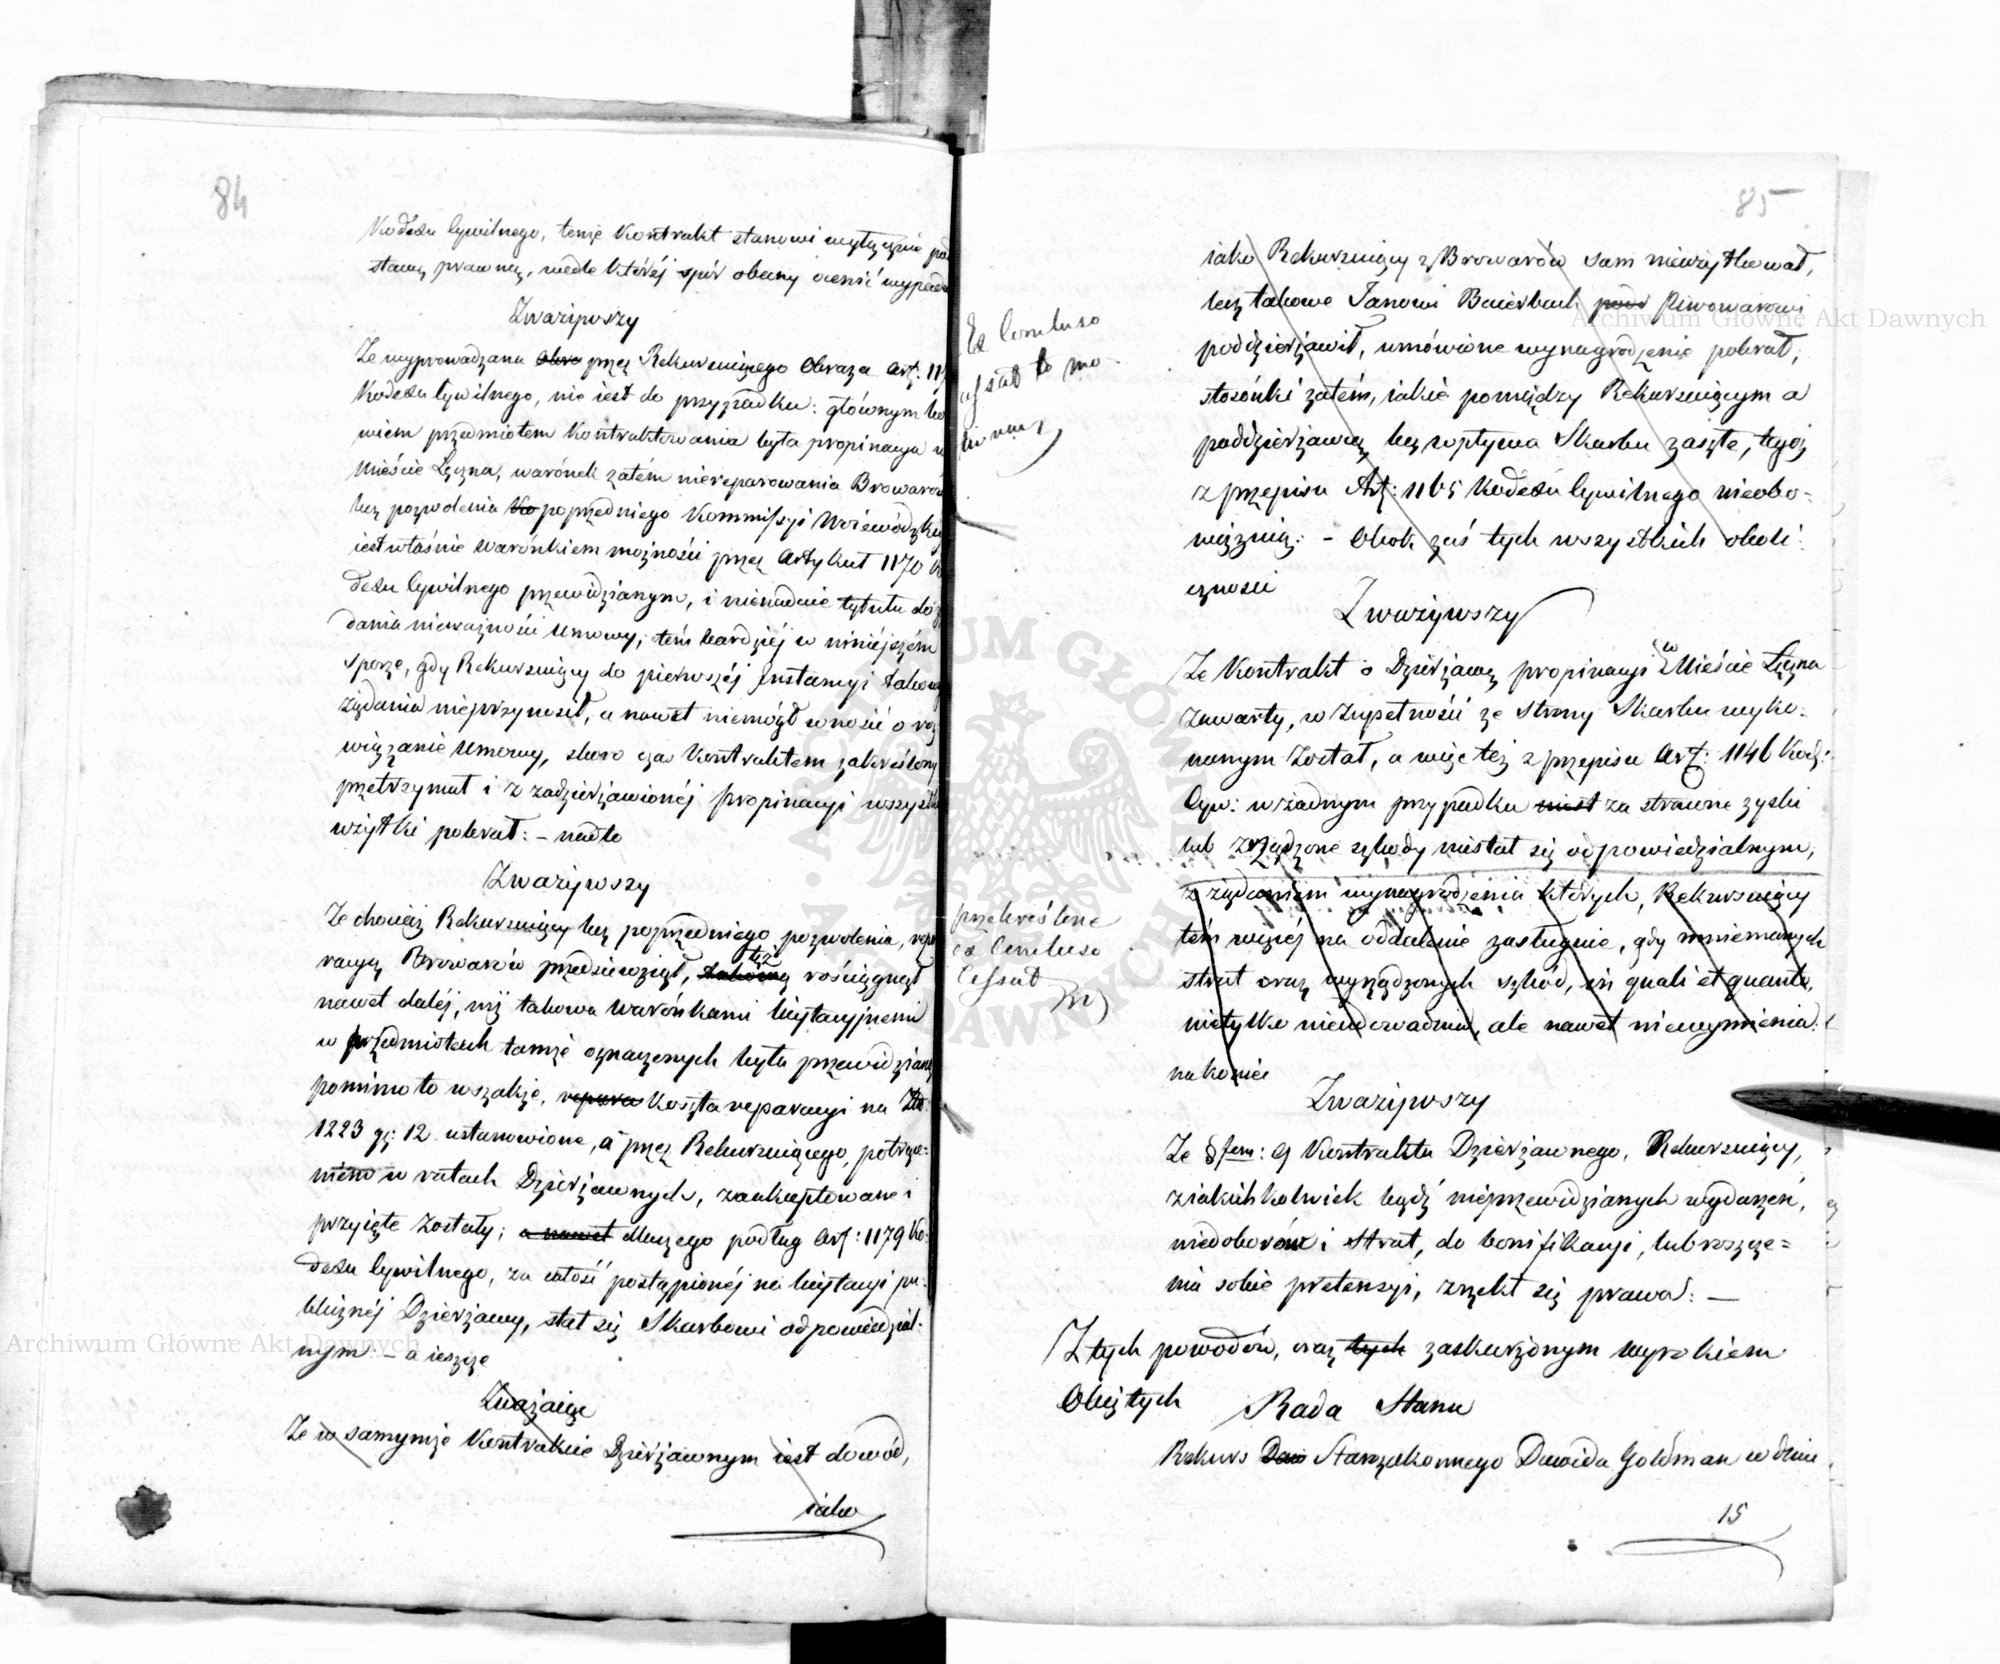 84
Kodexu Cywilnego, tenże Kontrakt stanowi wyłącznie pod
stawę prawną, wedle której spór obecny ocenić wypada
Zważywszy
Że wyprowadzana obra przez Rekursuiącego Obraza Art: 11
Kodexu Cywilnego, nie iest do przypadku: głównym bo
wiem przedmiotem Kontraktowania była propinacya w
Mieście Łęczna, warónek zatém niereparowania Browarów
bez pozwolenia Ko poprzedniego Kommissyi Woiewódzkiey
iest właśnie warónkiem możności przez Artykuł 1170 Ko
dexu Cywilnego przewidzianym, i nienadaie tytułu do żą
dania nieważności Umowy; tém bardziéj w niniejszém
sporze, gdy Rekursuiący do pierwszéj Instancyi takowego
żądania nieprzynosił, a nawet niemógł wnosić o roz
wiązanie Umowy, skoro czas Kontraktem zakreślony
przetrzymał i z zadzierżawionéj propinacyi wszystkie
użytki pobrał: – nadto
Zważywszy
Że chociaż Rekursuiący bez poprzedniego pozwolenia, repa
racyą Browarów przedsiewziął, takową tęż rościągnął
nawet daléj, niż takowa warónkami licytacyjnemi
w przedmiotach tamże oznaczonych była przewidziana
pomimo to wszakże, repara Koszta reparacyi na Złp:
1223 gr: 12 ustanowione, a przez Rekursuiącego, potrące-
niem w ratach Dzierżawnych, zaakceptowane i
przyięte zostały; a nawet dlaczego podług Art: 1179 Ko-
dexu Cywilnego, za całość postąpionéj na licytacyi pu-
bliznéj Dzierżawy, stał się Skarbowi odpowiedzial-
nym: – a ieszcze
Zważaiąc
Że w samymże Kontrakcie Dzierżawnym iest dowód,
iako
85
Ex Concluso
cessat to mo-
tivum
iako Rekursuiący z Browarów sam nieużytkował,
lecz takowe Janowi Baierbach piwowarowi
poddzierżawił, umówione wynagrodzenie pobrał;
stosónki zatém, iakie pomiędzy Rekursuiącym a
poddzierżawcą bez wpływu Skarbu zaszłe, tegoż
z przepisu Art: 1165 Kodexu Cywilnego nieobo-
wiązuią: – Obok zaś tych wszystkich okoli-
czności
Zważywszy
Że Kontrakt o Dzierżawę propinacyi w Mieście Łęczna
zawarty, w zupełności ze strony Skarbu wyko-
nanym został, a więc też z przepisu Art: 1146 Kod:
Cyw: w żadnym przypadku niest za stracone zyski
lub zrządzone szkody niestał się odpowiedzialnym,
z żądaniem wynagrodzenia których, Rekursuiący
tém więcéj na oddalenie zasługuie, gdy mniemanych
strat oraz wyrządzonych szkód, in quali et quanto,
nietylko nieudowadnia, ale nawet niewymienia:
nakoniec
przekreślone
ex Concluso
Cessat
Zważywszy
Że §fem: 9 Kontraktu Dzierżawnego, Rekursuiący,
z iakichkolwiek bądź nieprzewidzianych wydarzeń,
niedoborów i strat, do bonifikacyi, lub roszcze=
nia sobie pretensyi, zrzekł się prawa: –
Z tych powodów, oraz tych zaskarżonym wyrokiem
Obiętych
Rada Stanu
Rekurs Daw Starozakonnego Dawida Goldman w dniu
15
Archiwum Główne Akt Dawnych
Archiwum Główne Akt Dawnych
ARCHIWUM GŁÓWNE AKT DAWNYCH